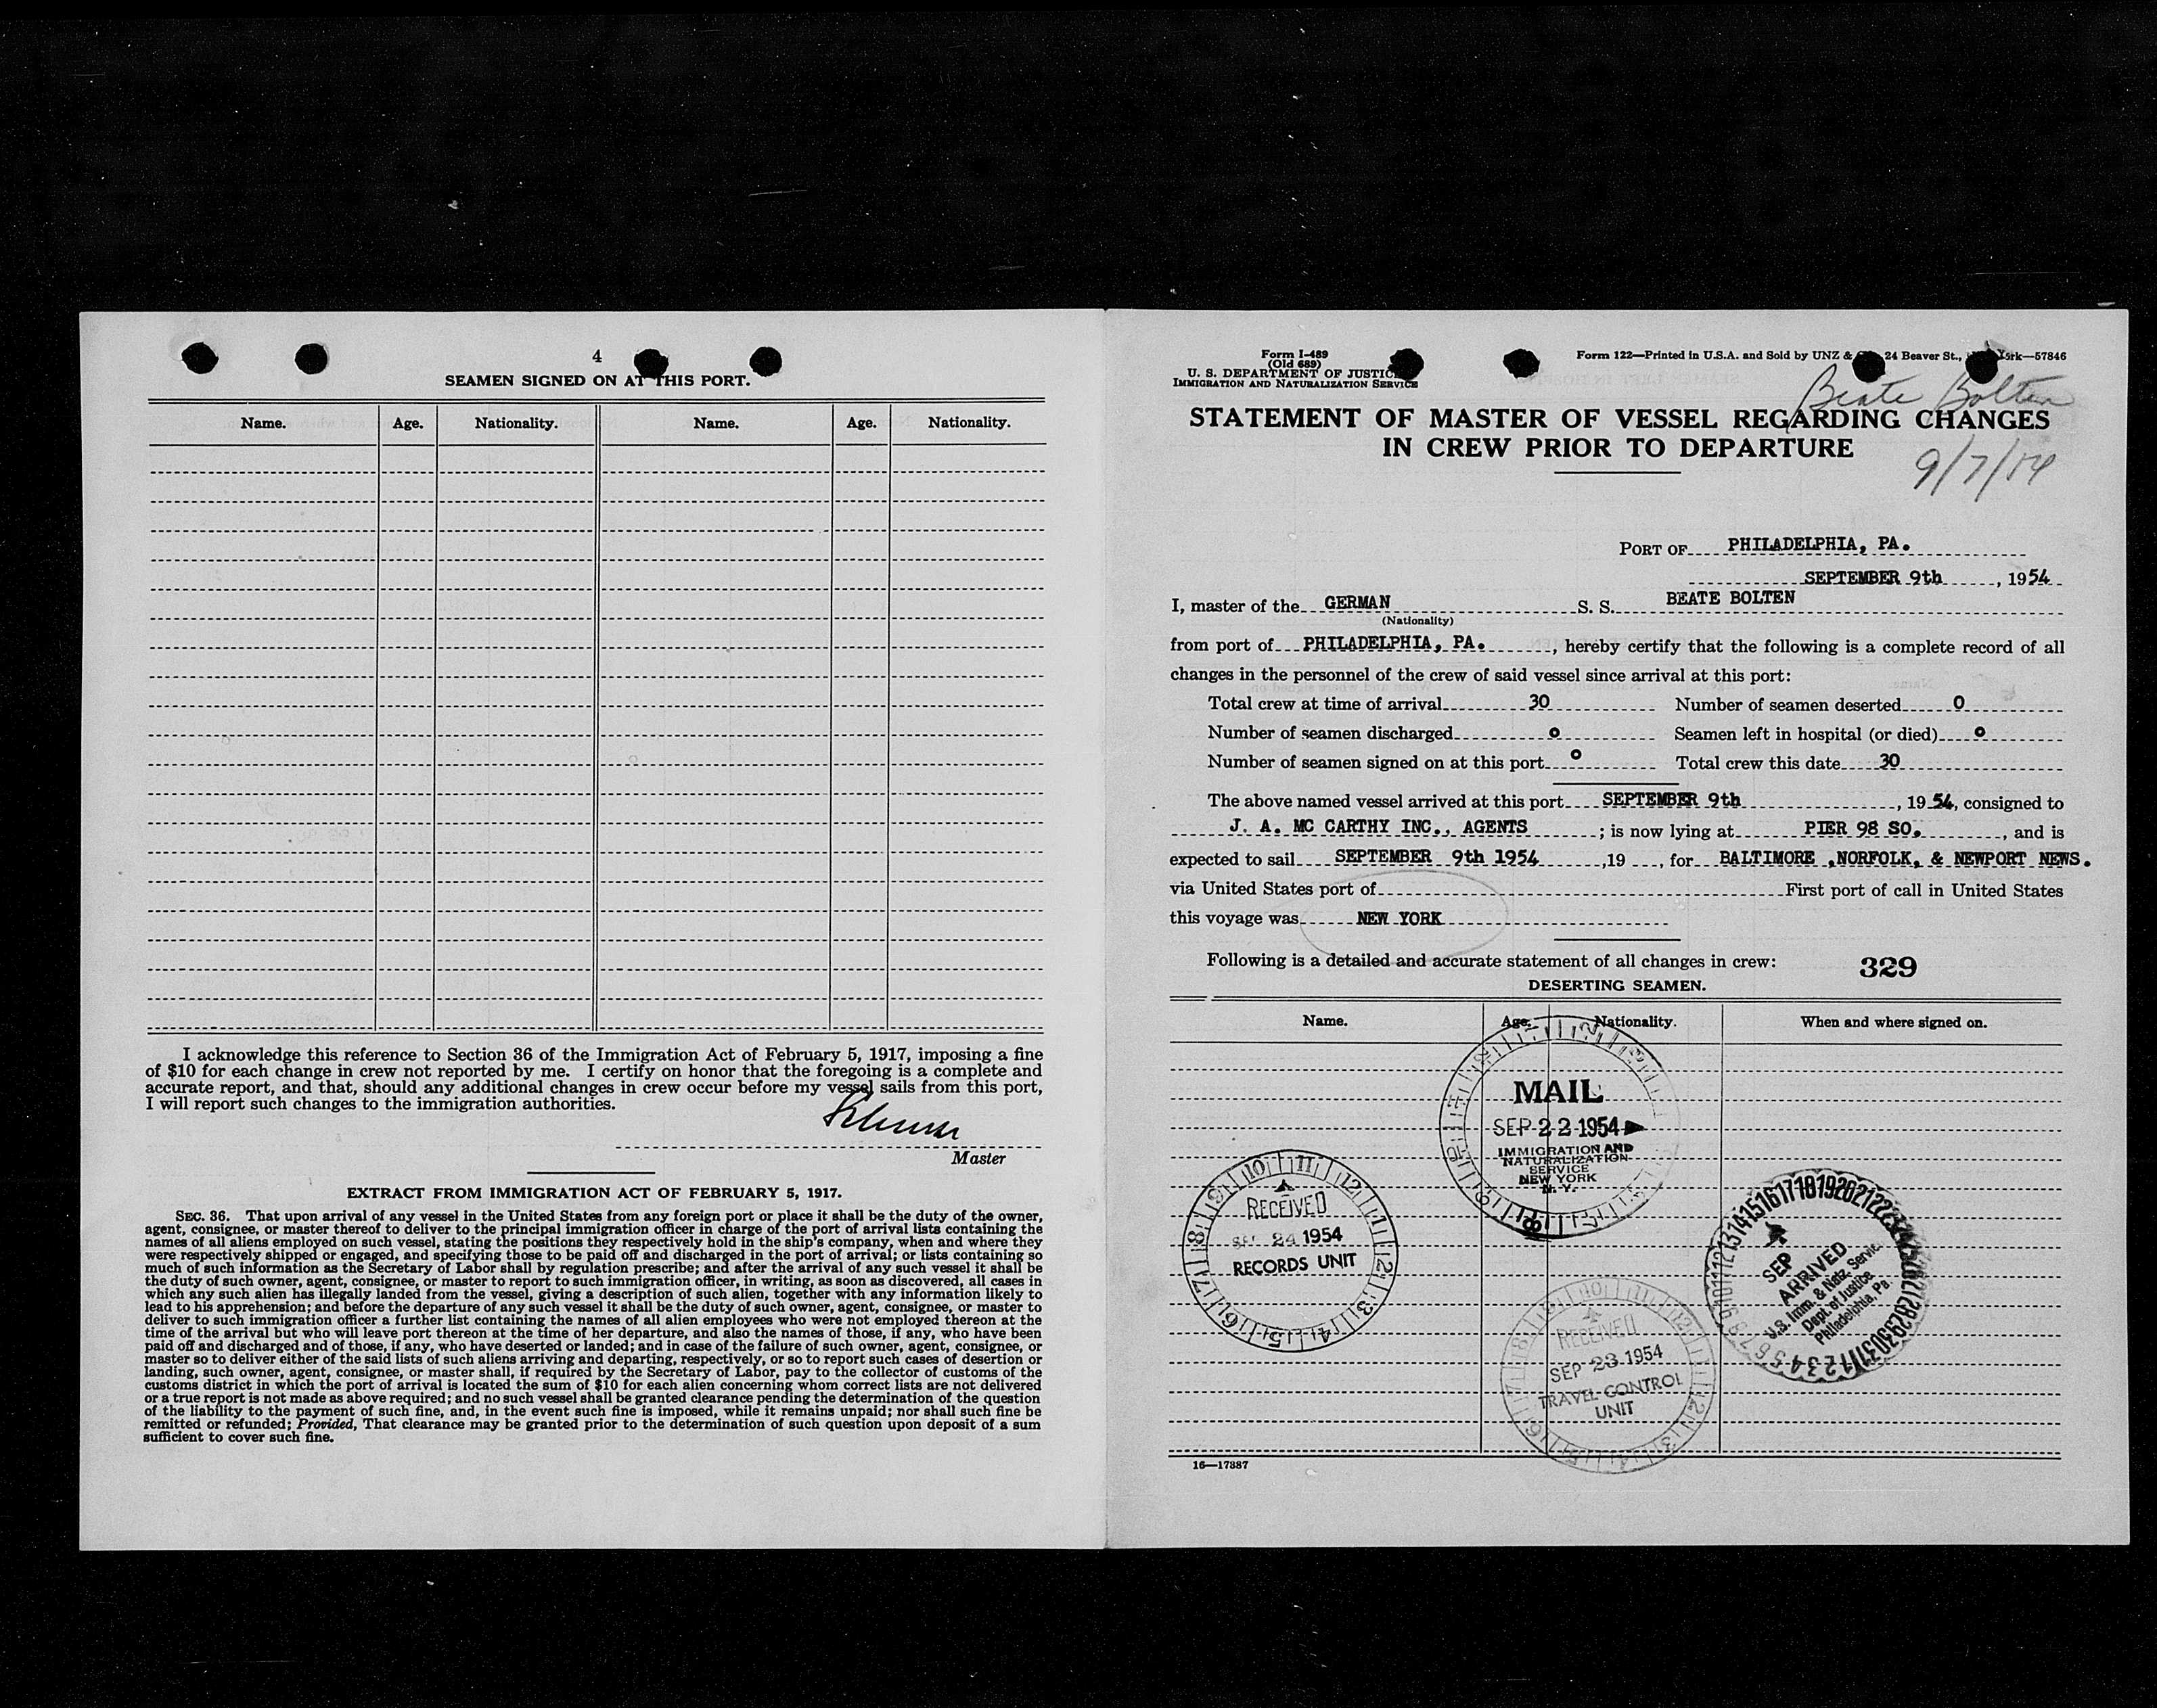 4
SEAMEN SIGNED ON AT THIS PORT.
Name. Age. Nationality. Name. Age. Nationality.
I acknowledge this reference to Section 36 of the Immigration Act of February 5, 1917, imposing a fine
of $10 for each change in crew not reported by me. I certify on honor that the foregoing is a complete and
accurate report, and that, should any additional changes in crew occur before my vessel sails from this port,
I will report such changes to the immigration authorities.
Master
EXTRACT FROM IMMIGRATION ACT OF FEBRUARY 5, 1917.
SEC. 36. That upon arrival of any vessel in the United States from any foreign port or place it shall be the duty of the owner,
agent, consignee, or master thereof to deliver to the principal immigration officer in charge of the port of arrival lists containing the
names of all aliens employed on such vessel, stating the positions they respectively hold in the ship's company, when and where they
were respectively shipped or engaged, and specifying those to be paid off and discharged in the port of arrival; or lists containing so
much of such information as the Secretary of Labor shall by regulation prescribe; and after the arrival of any such vessel it shall be
the duty of such owner, agent, consignee, or master to report to such immigration officer, in writing, as soon as discovered, all cases in
which any such alien has illegally landed from the vessel, giving a description of such alien, together with any information likely to
lead to his apprehension; and before the departure of any such vessel it shall be the duty of such owner, agent, consignee, or master to
deliver to such immigration officer a further list containing the names of all alien employees who were not employed thereon at the
time of the arrival but who will leave port thereon at the time of her departure, and also the names of those, if any, who have been
paid off and discharged and of those, if any, who have deserted or landed; and in case of the failure of such owner, agent, consignee, or
master so to deliver either of the said lists of such aliens arriving and departing, respectively, or so to report such cases of desertion or
landing, such owner, agent, consignee, or master shall, if required by the Secretary of Labor, pay to the collector of customs of the
customs district in which the port of arrival is located the sum of $10 for each alien concerning whom correct lists are not delivered
or a true report is not made as above required; and no such vessel shall be granted clearance pending the determination of the question
of the liability to the payment of such fine, and, in the event such fine is imposed, while it remains unpaid; nor shall such fine be
remitted or refunded; Provided, That clearance may be granted prior to the determination of such question upon deposit of a sum
sufficient to cover such fine.
Form I-489
(Old 689)
U. S. DEPARTMENT OF JUSTICE
IMMIGRATION AND NATURALIZATION SERVICE
Form 122—Printed in U.S.A. and Sold by UNZ & 24 Beaver St., York—57846
Beate Bolten
STATEMENT OF MASTER OF VESSEL REGARDING CHANGES
IN CREW PRIOR TO DEPARTURE
9/7/54
PORT OF PHILADELPHIA, PA.
SEPTEMBER 9th, 1954
I, master of the GERMAN S. S. BEATE BOLTEN
(Nationality)
from port of PHILADELPHIA, PA., hereby certify that the following is a complete record of all
changes in the personnel of the crew of said vessel since arrival at this port:
Total crew at time of arrival 30 Number of seamen deserted 0
Number of seamen discharged o Seamen left in hospital (or died) o
Number of seamen signed on at this port o Total crew this date 30
The above named vessel arrived at this port SEPTEMBER 9th, 1954, consigned to
J. A. MC CARTHY INC., AGENTS; is now lying at PIER 98 SO., and is
expected to sail SEPTEMBER 9th 1954, 19, for BALTIMORE ,NORFOLK, & NEWPORT NEWS.
via United States port of First port of call in United States
this voyage was NEW YORK
Following is a detailed and accurate statement of all changes in crew: 329
DESERTING SEAMEN.
Name. Age. Nationality. When and where signed on.
MAIL
SEP 22 1954
IMMIGRATION AND
NATURALIZATION
SERVICE
NEW YORK
N. Y.
RECEIVED
SEP 24 1954
RECORDS UNIT
RECEIVED
SEP 23 1954
TRAVEL CONTROL
UNIT
SEP
ARRIVED
U.S. Imm. & Natz. Service
Dept. of Justice
Philadelphia, Pa.
16—17387